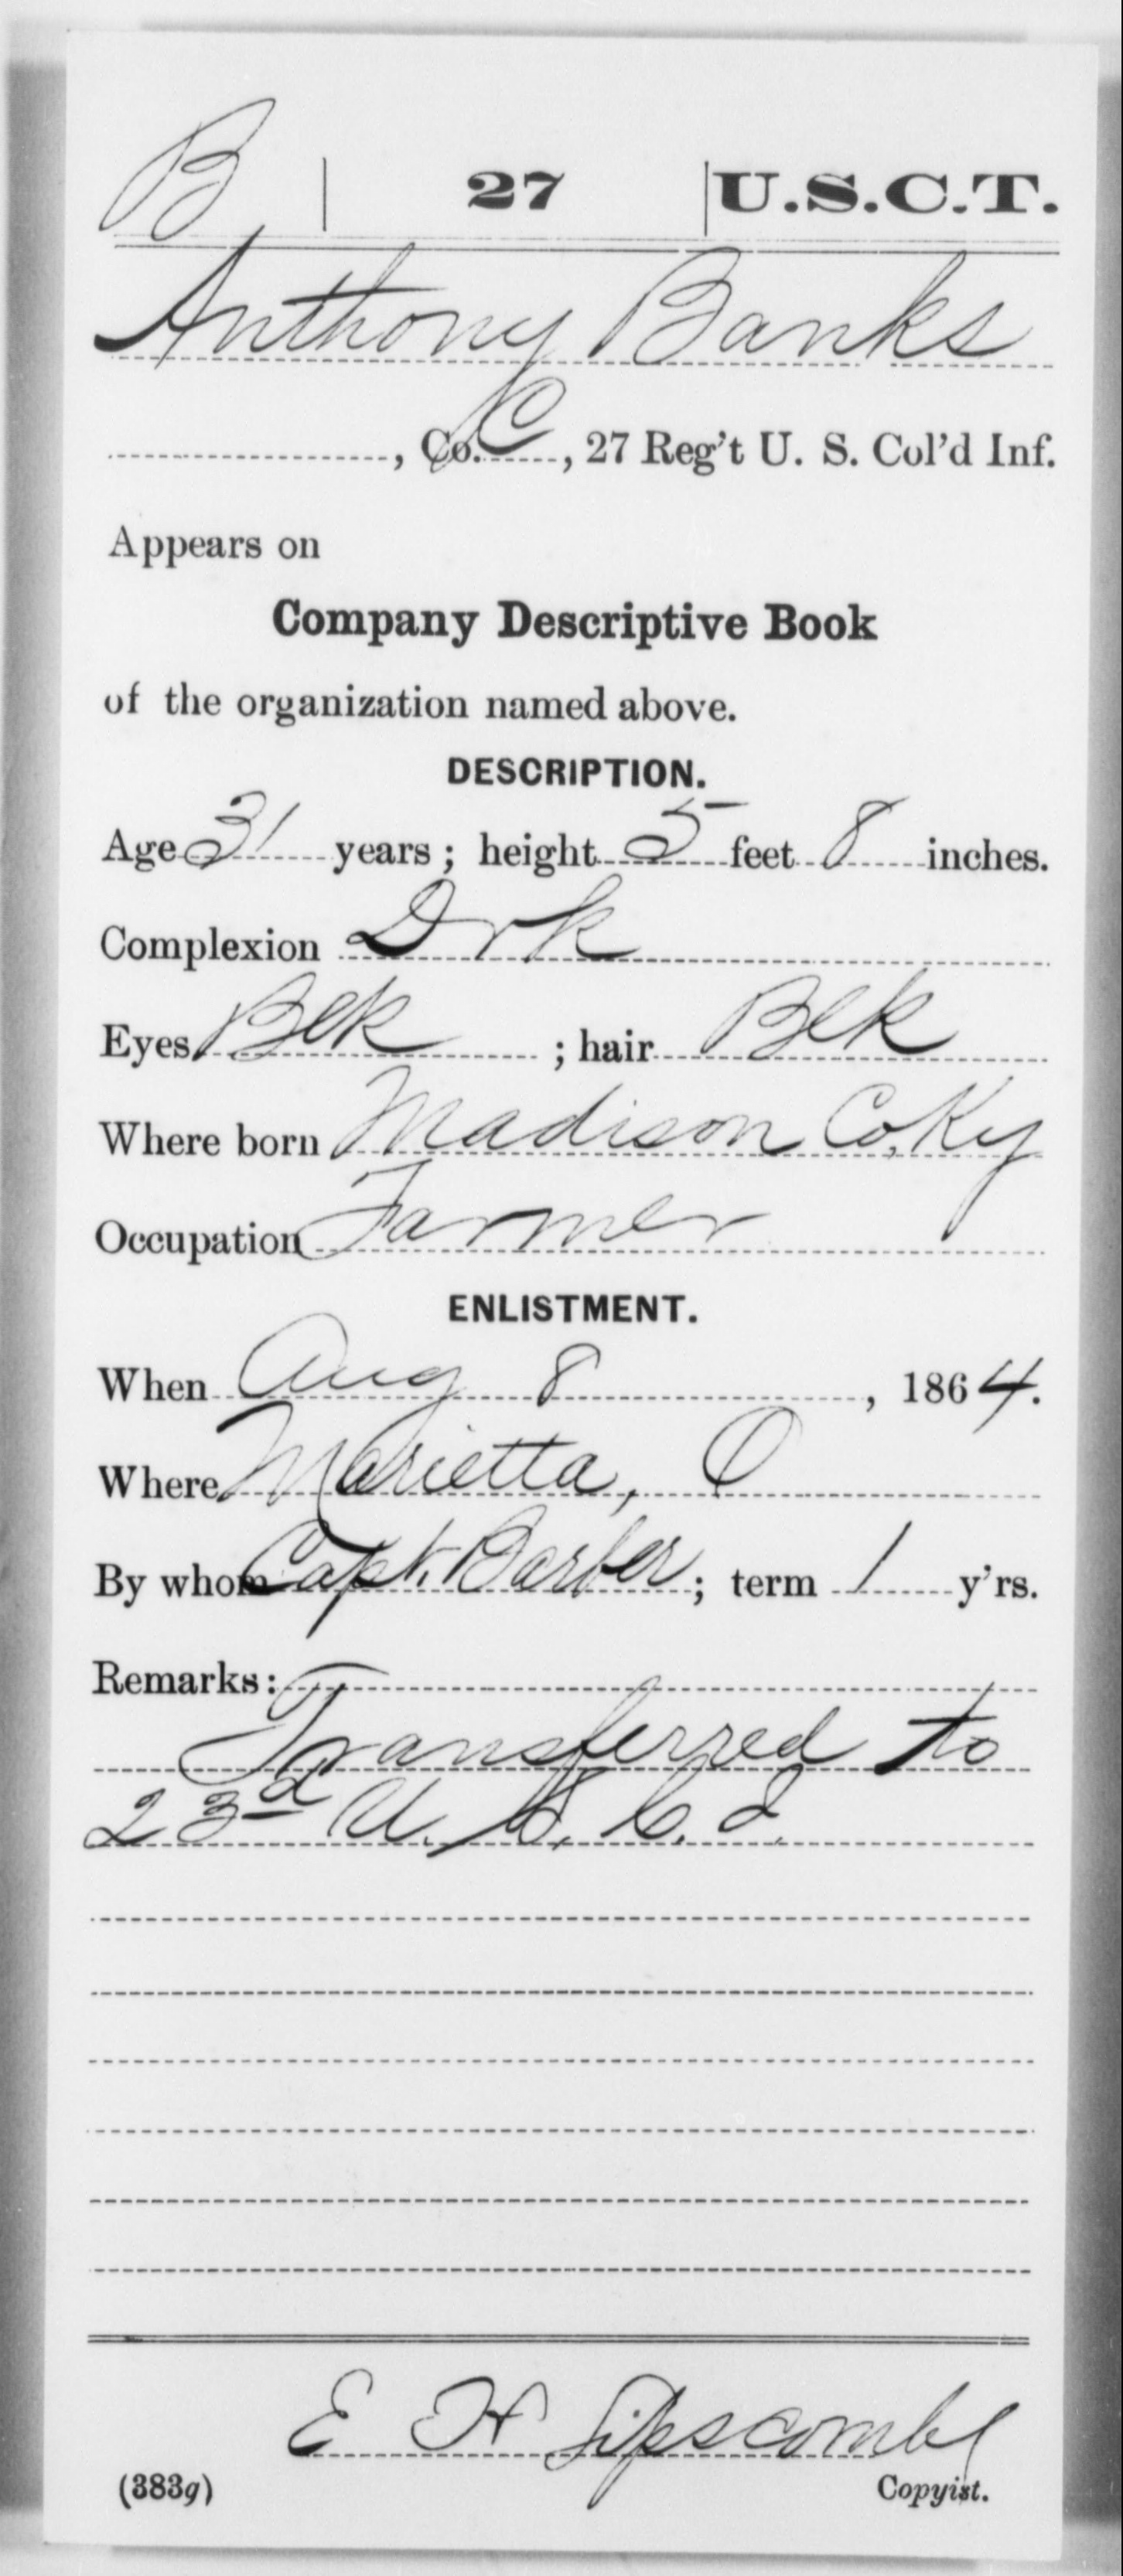 B | 27 | U.S.C.T.
Anthony Banks
, Co. C, 27 Reg't U. S. Col'd Inf.
Appears on
Company Descriptive Book
of the organization named above.
DESCRIPTION.
Age 31 years; height 5 feet 8 inches.
Complexion Drk
Eyes Blk ; hair Blk
Where born Madison Co, Ky
Occupation Farmer
ENLISTMENT.
When Aug 8, 1864.
Where Marietta, O
By whom Capt. Barber; term 1 y'rs.
Remarks:
Transferred to
23d U. S. C. I.
E H Lipscomb
(383g) Copyist.